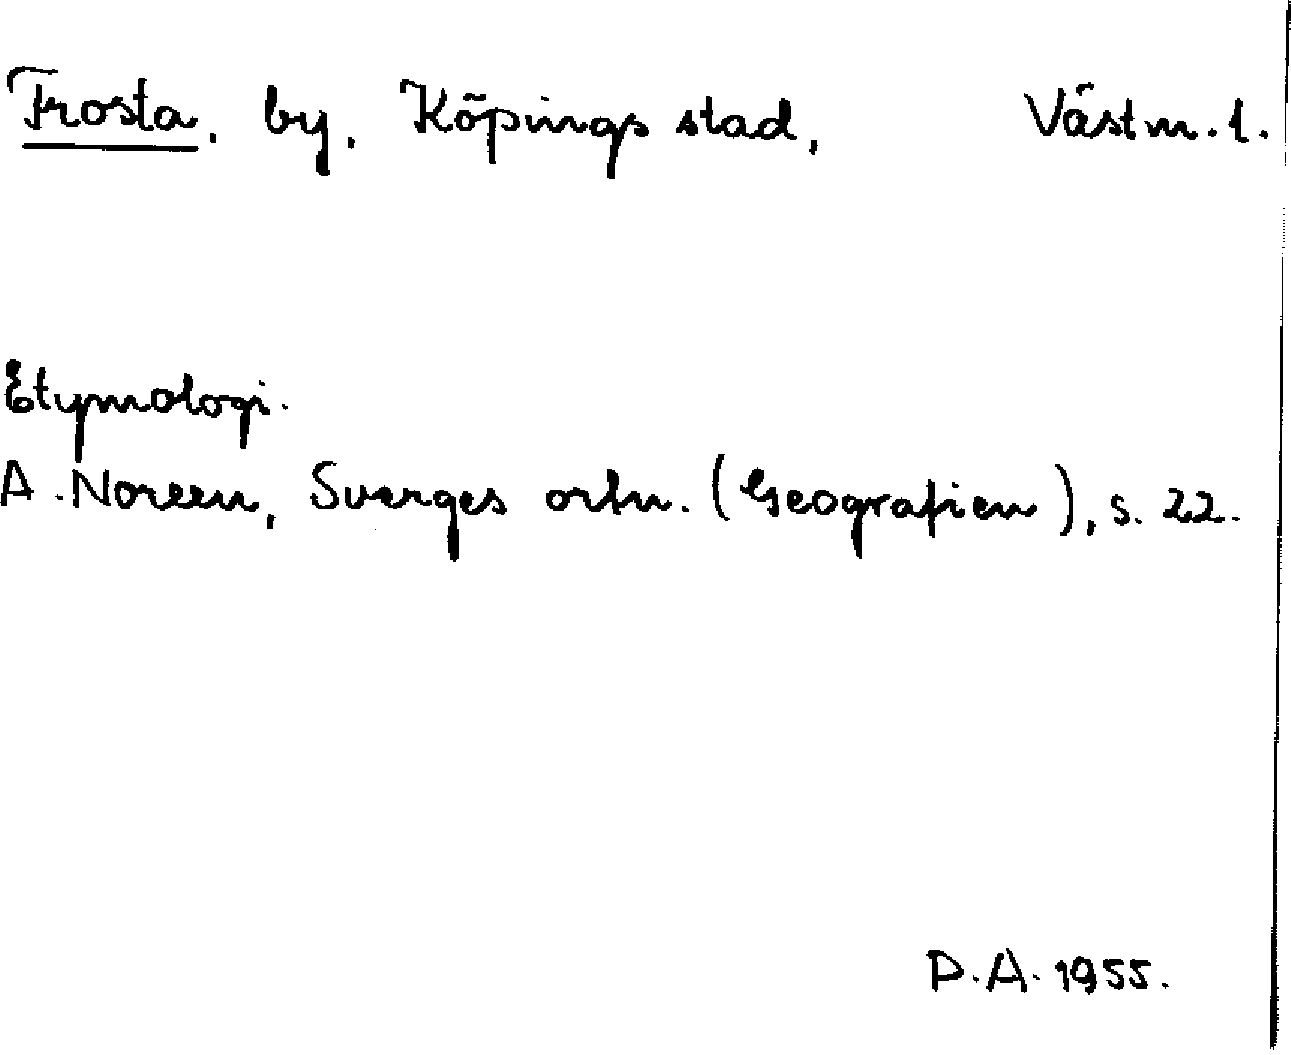 Frosta, by, Köpings stad, Västm. l.
Etymologi.
A. Noreen, Sverges ortn. (Geografien), s. 22.
D.A. 1955.